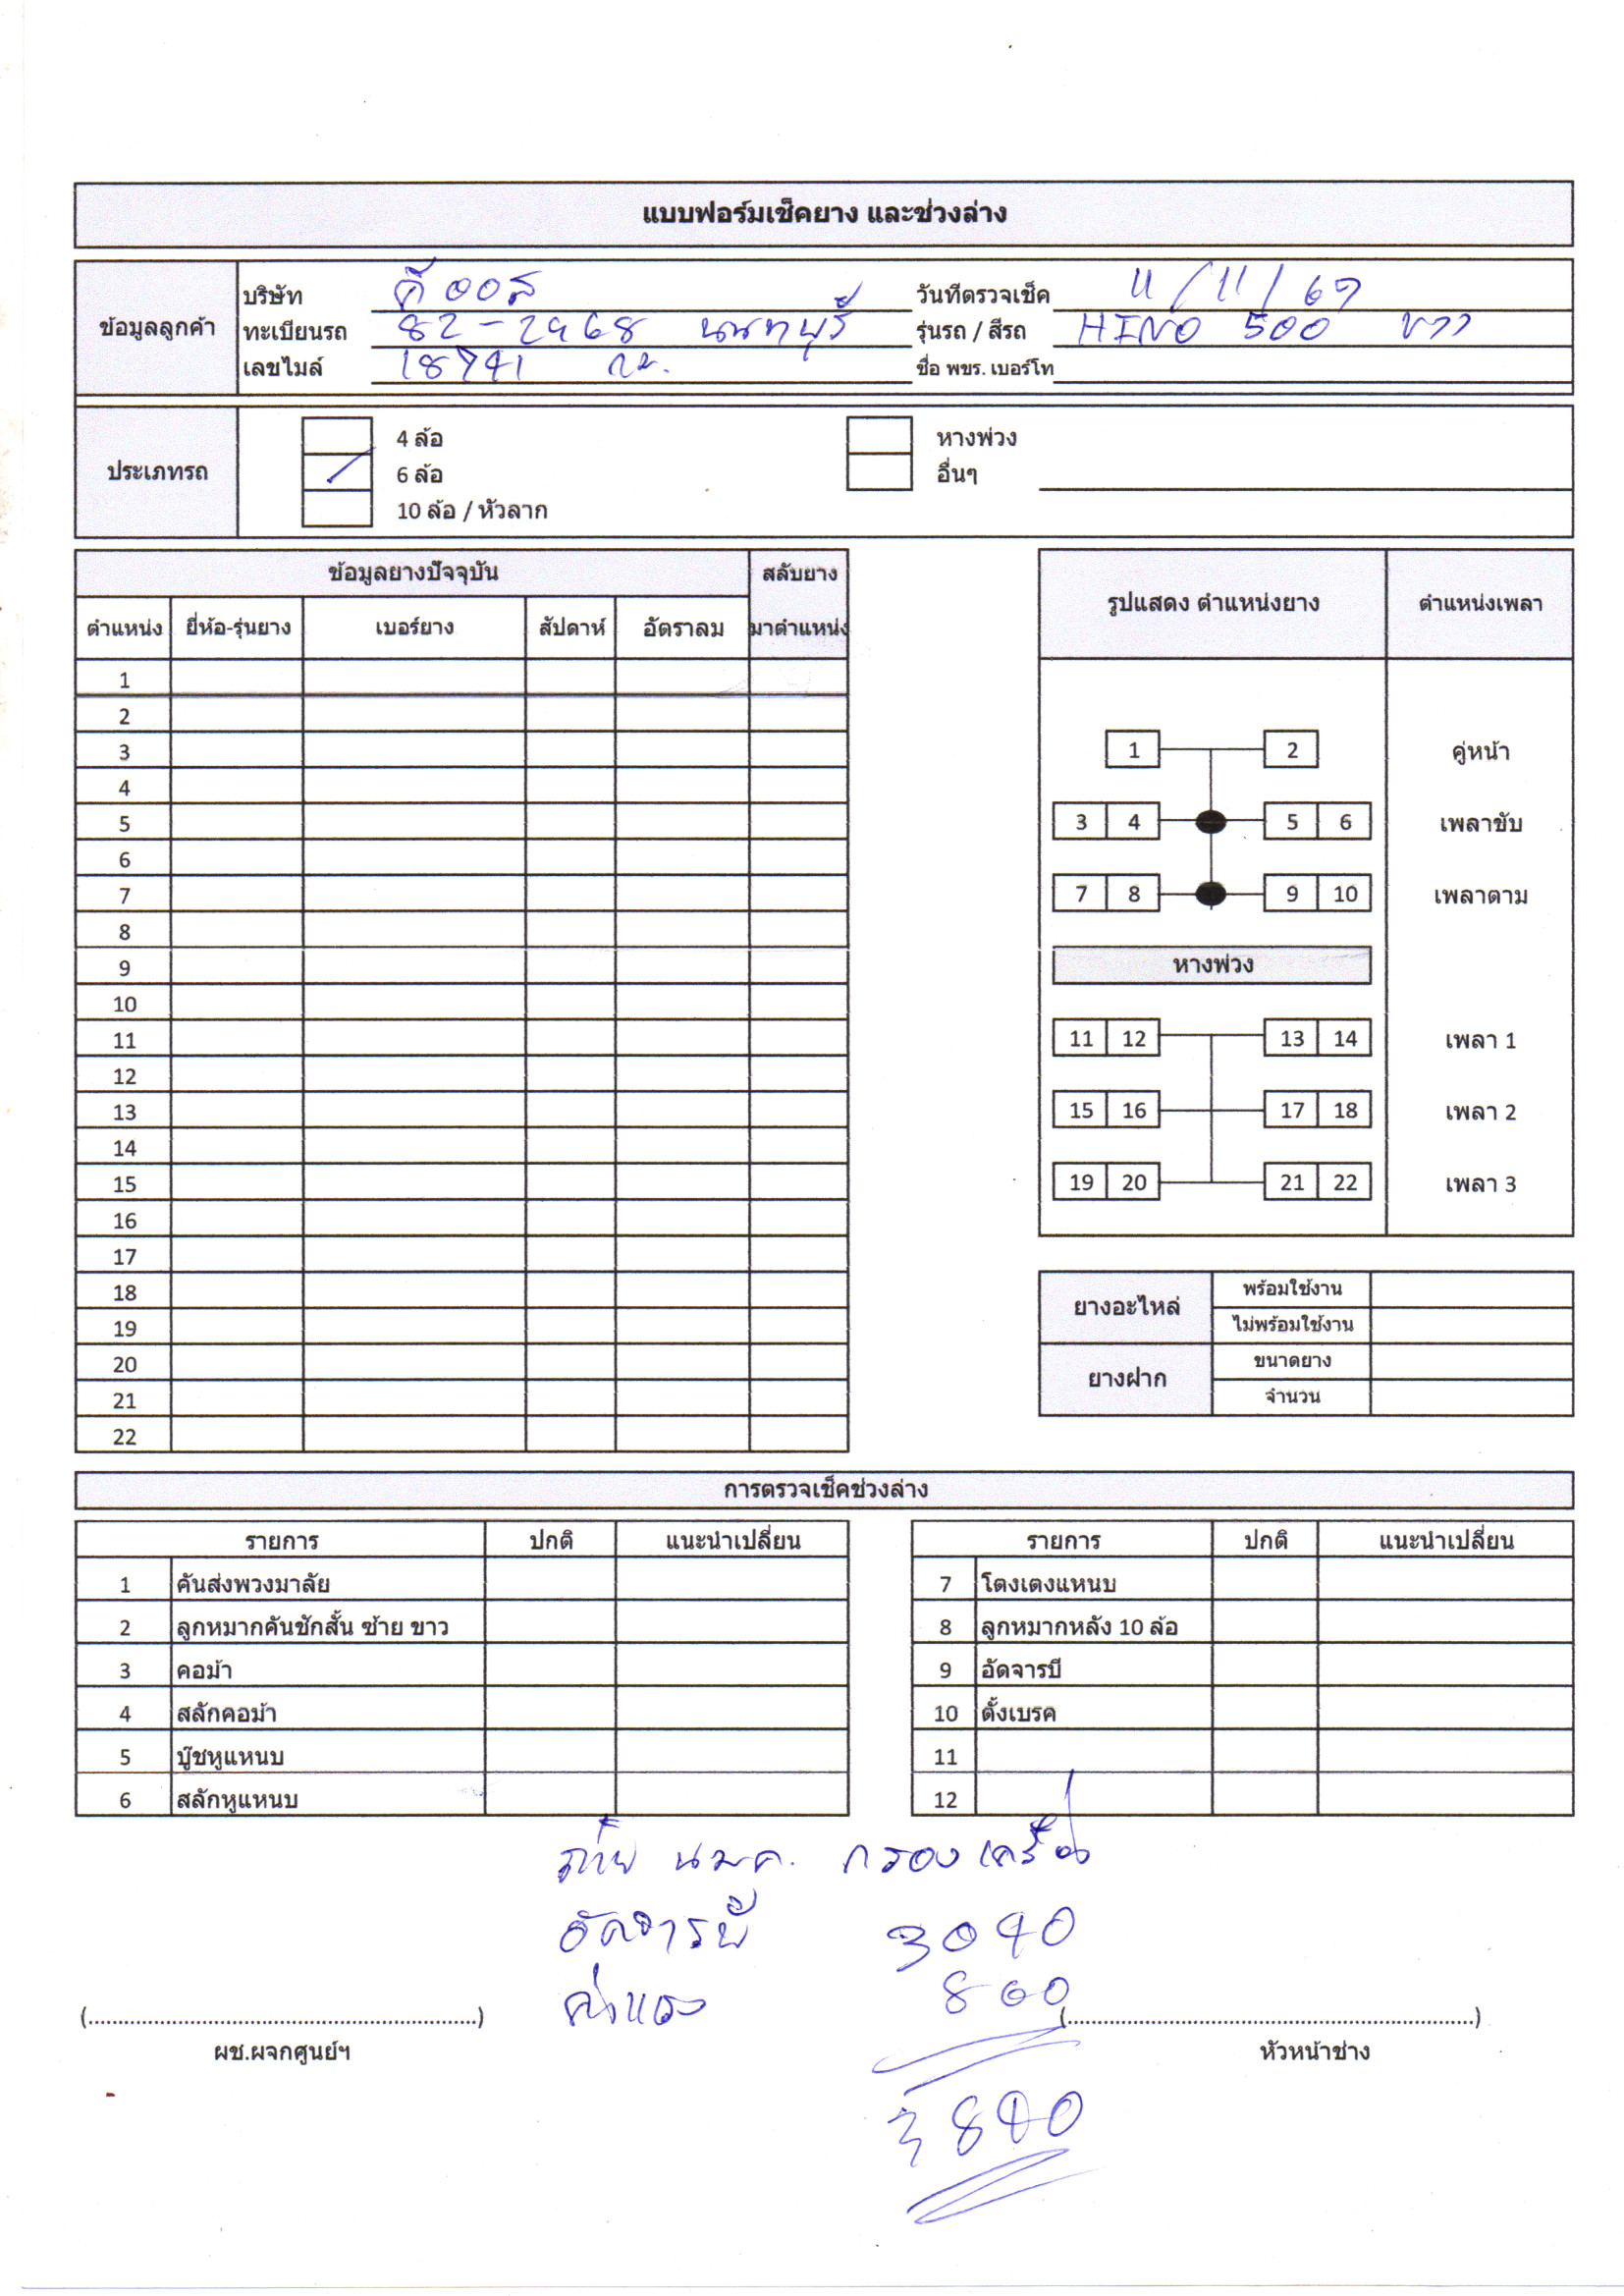 แบบฟอร์มเช็คยาง และช่วงล่าง
ข้อมูลลูกค้า
บริษัท ดีออส วันที่ตรวจเช็ค 11/11/67
ทะเบียนรถ 82-2968 นนทบุรี รุ่นรถ / สีรถ HINO 500 ขาว
เลขไมล์ 18741 กม. ชื่อ พขร. เบอร์โท
ประเภทรถ
4 ล้อ หางพ่วง
6 ล้อ อื่นๆ
10 ล้อ / หัวลาก
ข้อมูลยางปัจจุบัน สลับยาง
ตำแหน่ง ยี่ห้อ-รุ่นยาง เบอร์ยาง สัปดาห์ อัตราลม มาตำแหน่ง
1
2
3
4
5
6
7
8
9
10
11
12
13
14
15
16
17
18
19
20
21
22
รูปแสดง ตำแหน่งยาง ตำแหน่งเพลา
1 2 คู่หน้า
3 4 5 6 เพลาขับ
7 8 9 10 เพลาตาม
หางพ่วง
11 12 13 14 เพลา 1
15 16 17 18 เพลา 2
19 20 21 22 เพลา 3
ยางอะไหล่ พร้อมใช้งาน
ไม่พร้อมใช้งาน
ยางฝาก ขนาดยาง
จำนวน
การตรวจเช็คช่วงล่าง
รายการ ปกติ แนะนำเปลี่ยน
1 คันส่งพวงมาลัย
2 ลูกหมากคันชักสั้น ซ้าย ขาว
3 คอม้า
4 สลักคอม้า
5 บู๊ชหูแหนบ
6 สลักหูแหนบ
รายการ ปกติ แนะนำเปลี่ยน
7 โตงเตงแหนบ
8 ลูกหมากหลัง 10 ล้อ
9 อัดจารบี
10 ตั้งเบรค
11
12
ถ่าย นมค. กรองเครื่อง
อัดจารบี 3040
ค่าแรง 800
3840
(..........) (..........)
ผช.ผจกศูนย์ฯ หัวหน้าช่าง